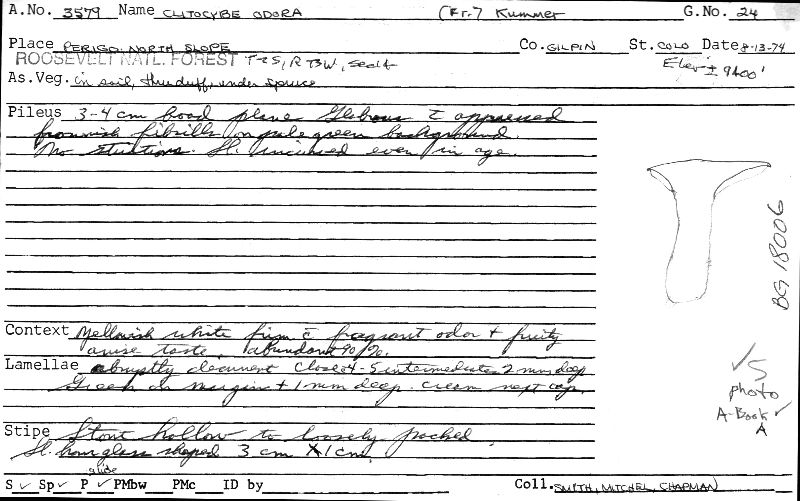 A.No. 3579 Name CLITOCYBE ODORA (Fr.) Kummer G.No. 24
Place PERIGO NORTH SLOPE Co. GILPIN St. COLO Date 8-13-74
ROOSEVELT NATL. FOREST T2S, R73W, Sec Elev ± 9400'
As.Veg. in soil, thru duff, under spruce
Pileus 3-4 cm broad plane Glabrous c̄ appressed
brownish fibrills on pale green background.
No striations. Sl. incurved even in age.
BG 18006
Context Yellowish white firm c̄ fragrant odor + fruity
anise taste, abundant
Lamellae abruptly decurrent close 4-5 intermediates 2 mm deep
Green on margin + 1 mm deep. cream next cap.
✓5
photo
A-Book ✓
A
Stipe Stout hollow to loosely packed
Sl. hourglass shaped 3 cm X 1 cm
slide
S ✓ Sp ✓ P ✓ PMbw PMc ID by Coll. SMITH, MITCHEL, CHAPMAN